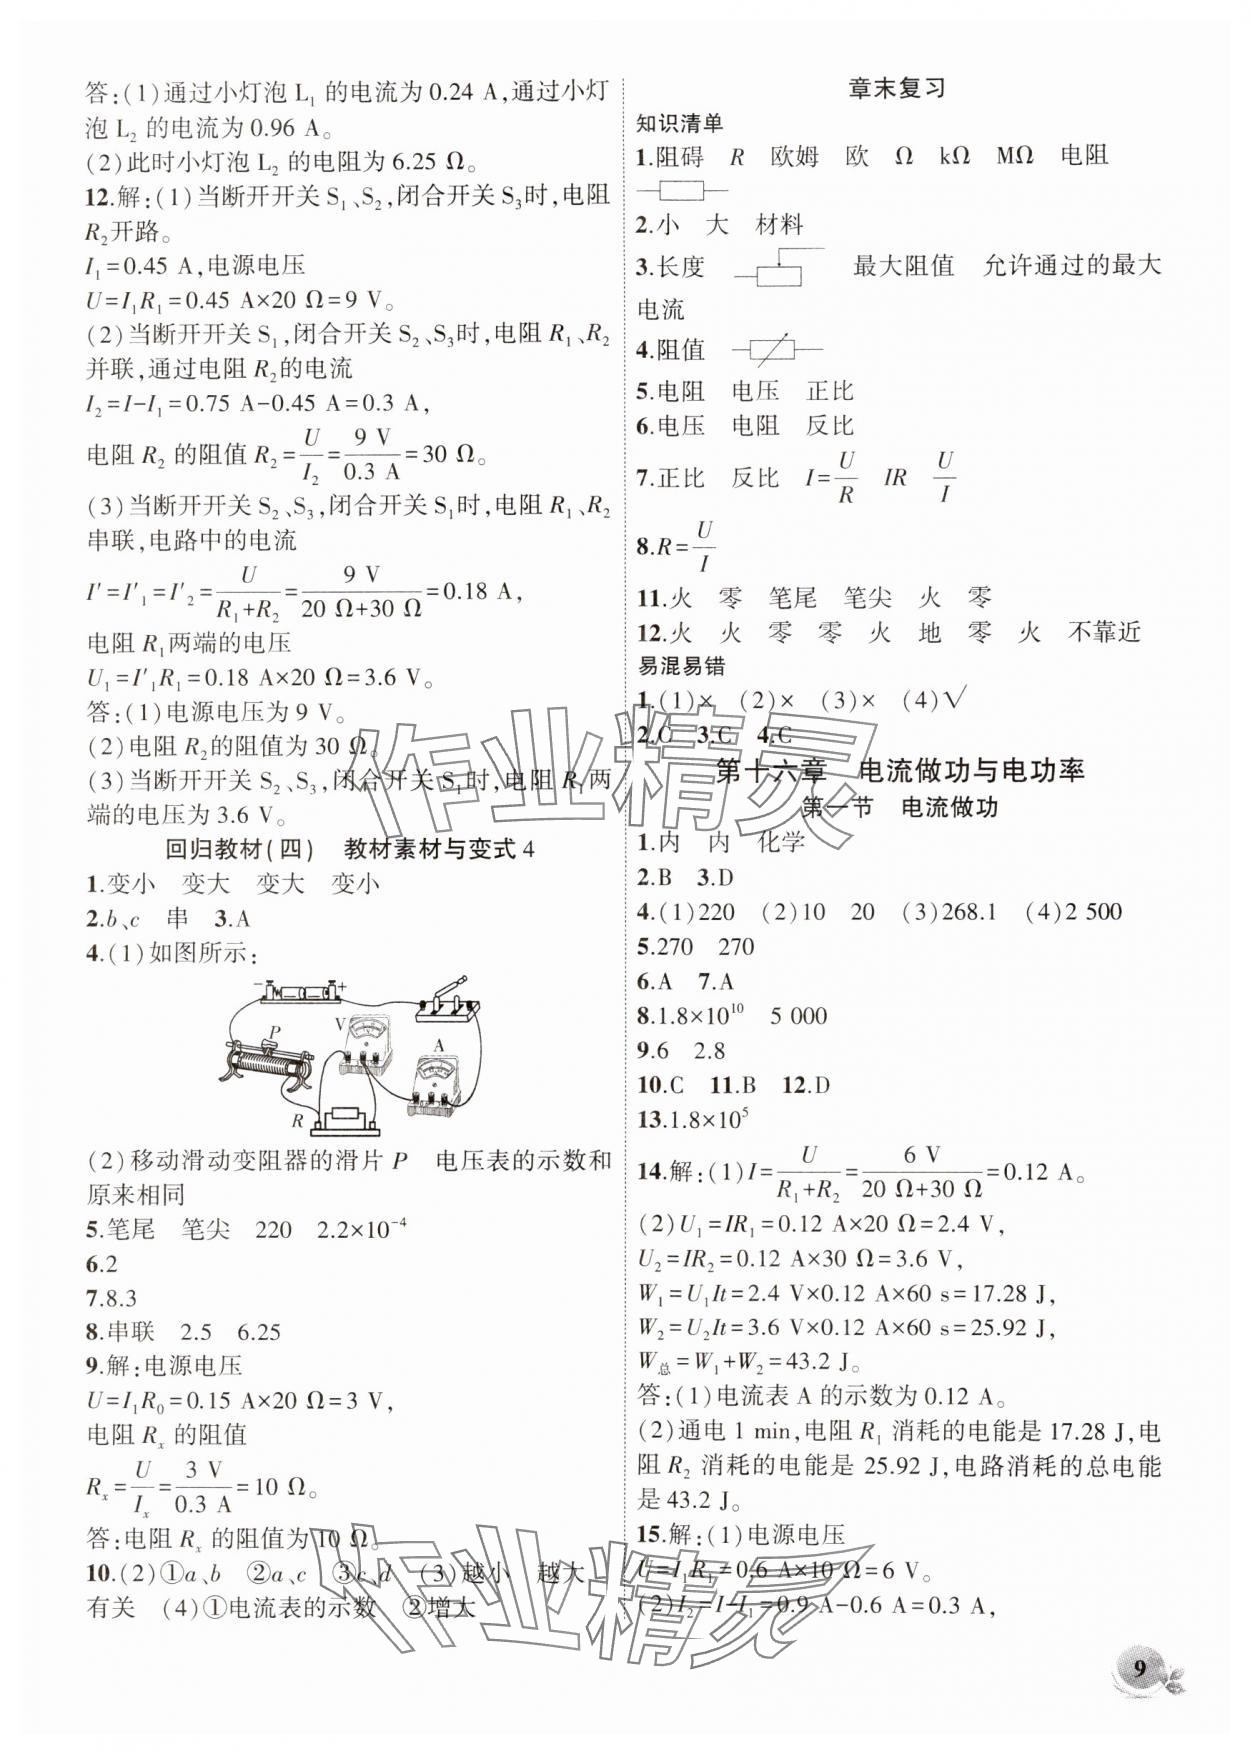 答:(1)通过小灯泡 L₁ 的电流为 0.24 A,通过小灯
泡 L₂ 的电流为 0.96 A。
(2)此时小灯泡 L₂ 的电阻为 6.25 Ω。
12.解:(1)当断开开关 S₁、S₂,闭合开关 S₃时,电阻
R₂开路。
I₁=0.45 A,电源电压
U=I₁R₁=0.45 A×20 Ω=9 V。
(2)当断开开关 S₁,闭合开关 S₂、S₃时,电阻 R₁、R₂
并联,通过电阻 R₂的电流
I₂=I-I₁=0.75 A-0.45 A=0.3 A,
电阻 R₂ 的阻值 R₂=U/I₂=9 V/0.3 A=30 Ω。
(3)当断开开关 S₂、S₃,闭合开关 S₁时,电阻 R₁、R₂
串联,电路中的电流
I′=I′₁=I′₂=U/(R₁+R₂)=9 V/(20 Ω+30 Ω)=0.18 A,
电阻 R₁两端的电压
U₁=I′₁R₁=0.18 A×20 Ω=3.6 V。
答:(1)电源电压为 9 V。
(2)电阻 R₂的阻值为 30 Ω。
(3)当断开开关 S₂、S₃,闭合开关 S₁时,电阻 R₁两
端的电压为 3.6 V。
回归教材(四) 教材素材与变式 4
1.变小 变大 变大 变小
2.b、c 串 3.A
4.(1)如图所示:
- +
P V A
R
(2)移动滑动变阻器的滑片 P 电压表的示数和
原来相同
5.笔尾 笔尖 220 2.2×10⁻⁴
6.2
7.8.3
8.串联 2.5 6.25
9.解:电源电压
U=I₁R₀=0.15 A×20 Ω=3 V,
电阻 Rₓ 的阻值
Rₓ=U/Iₓ=3 V/0.3 A=10 Ω。
答:电阻 Rₓ 的阻值为 10 Ω。
10.(2)①a、b ②a、c ③c、d (3)越小 越大
有关 (4)①电流表的示数 ②增大
章末复习
知识清单
1.阻碍 R 欧姆 欧 Ω kΩ MΩ 电阻
2.小 大 材料
3.长度 最大阻值 允许通过的最大
电流
4.阻值
5.电阻 电压 正比
6.电压 电阻 反比
7.正比 反比 I=U/R IR U/I
8.R=U/I
11.火 零 笔尾 笔尖 火 零
12.火 火 零 零 火 地 零 火 不靠近
易混易错
1.(1)× (2)× (3)× (4)√
2.C 3.C 4.C
第十六章 电流做功与电功率
第一节 电流做功
1.内 内 化学
2.B 3.D
4.(1)220 (2)10 20 (3)268.1 (4)2 500
5.270 270
6.A 7.A
8.1.8×10¹⁰ 5 000
9.6 2.8
10.C 11.B 12.D
13.1.8×10⁵
14.解:(1)I=U/(R₁+R₂)=6 V/(20 Ω+30 Ω)=0.12 A。
(2)U₁=IR₁=0.12 A×20 Ω=2.4 V,
U₂=IR₂=0.12 A×30 Ω=3.6 V,
W₁=U₁It=2.4 V×0.12 A×60 s=17.28 J,
W₂=U₂It=3.6 V×0.12 A×60 s=25.92 J,
W总=W₁+W₂=43.2 J。
答:(1)电流表 A 的示数为 0.12 A。
(2)通电 1 min,电阻 R₁ 消耗的电能是 17.28 J,电
阻 R₂ 消耗的电能是 25.92 J,电路消耗的总电能
是 43.2 J。
15.解:(1)电源电压
U=I₁R₁=0.6 A×10 Ω=6 V。
(2)I₂=I-I₁=0.9 A-0.6 A=0.3 A,
9
作业精灵
作业精灵